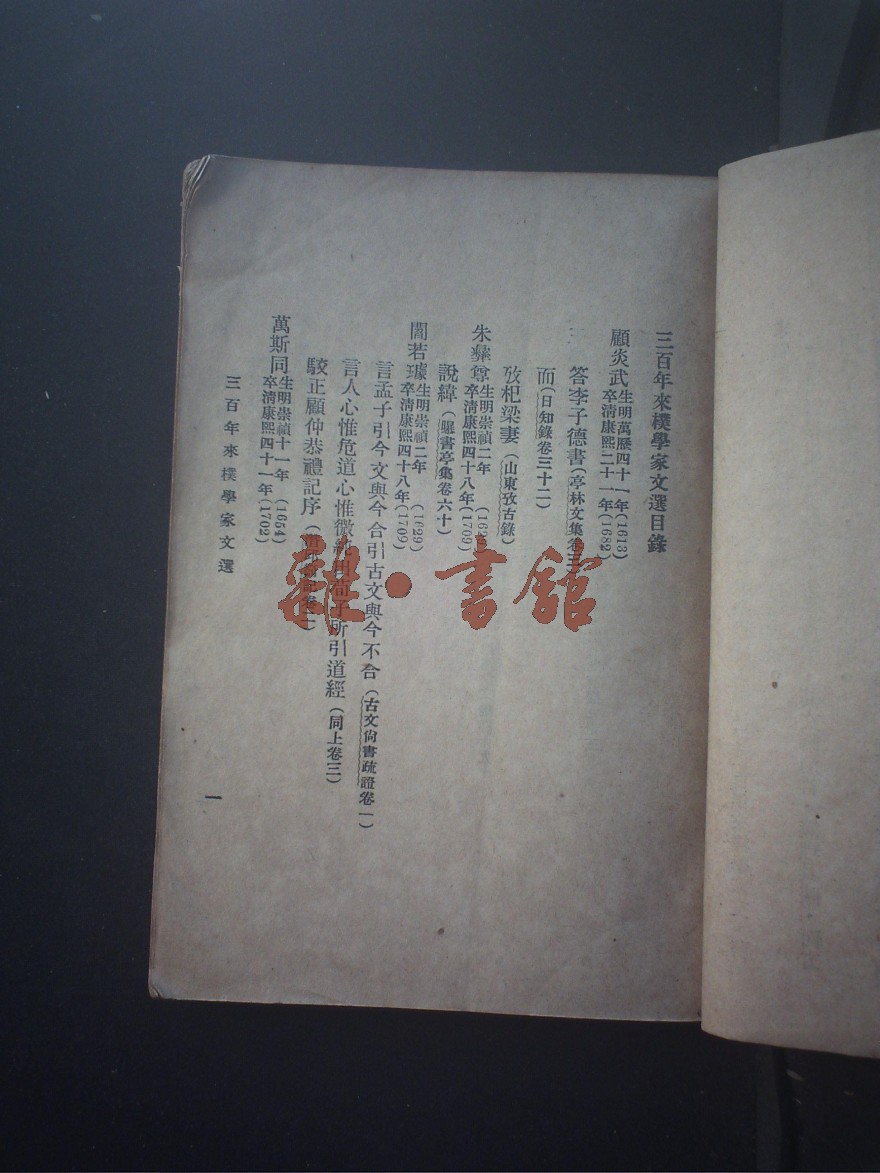 三百年來樸學家文選目錄
顧炎武生明萬曆四十一年(1613)卒清康熙二十一年(1682)
答李子德書(亭林文集卷三
而(日知錄卷三十二)
攷杞梁妻(山東攷古錄)
朱彝尊生明崇禎二年卒清康熙四十八年(1709)
說緯(曝書亭集卷六十)
閻若璩生明崇禎二年(1629)卒清康熙四十八年(1709)
言孟子引今文與今合引古文與今不合(古文尙書疏證卷一)
言人心惟危道心惟微純用荀子所引道經(同上卷三)
駮正顧仲恭禮記序(
萬斯同生明崇禎十一年(1654)卒清康熙四十一年(1702)
三百年來樸學家文選
一
雜·書館